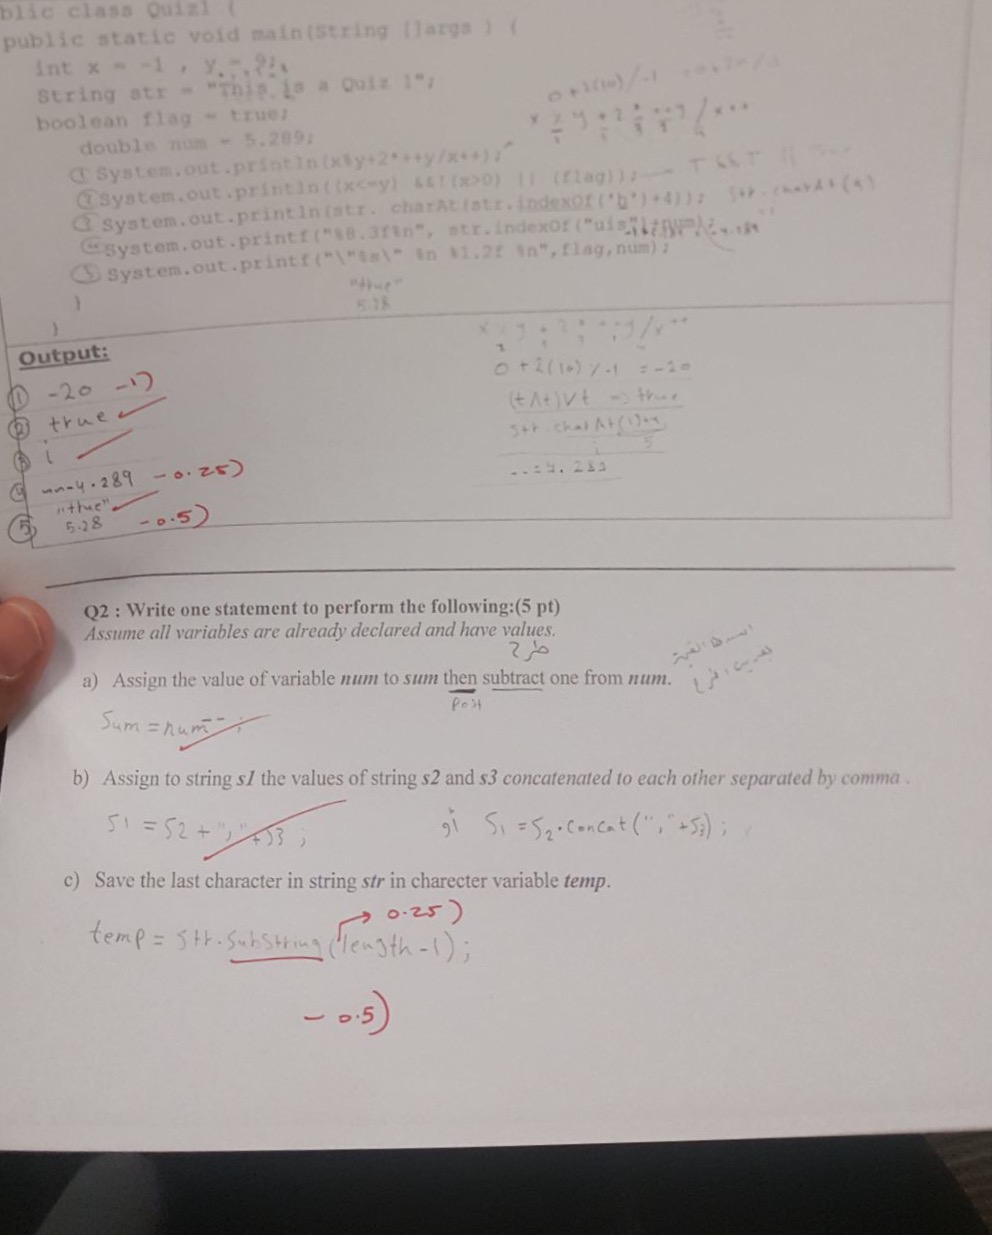 blic class Quiz1 {
public static void main(String []args ) {
int x = -1 , y = 9;
String str = "This is a Quiz 1";
boolean flag = true;
double num = 5.289;
① System.out.println(x%y+2*++y/x++);
② System.out.println((x<=y) &&!(x>0) || (flag));
③ System.out.println(str. charAt(str.indexOf('h')+4));
④ System.out.printf("%8.3f%n", str.indexOf("uis")+num);
⑤ System.out.printf("\"%s\" %n %1.2f %n",flag,num);
"true"
5.28
}
}
Output:
① -20 -1)
② true
③ i
④ -4.289 -0.25)
⑤ "true"
5.28 -0.5)
0+2(10)/-1 = -20
(t∧t)∨t => true
str.charAt(1)+4
i 5
Q2 : Write one statement to perform the following:(5 pt)
Assume all variables are already declared and have values.
طرح
a) Assign the value of variable num to sum then subtract one from num.
Post
Sum = num-- ;
b) Assign to string s1 the values of string s2 and s3 concatenated to each other separated by comma .
S1 = S2 + "," + S3 ;
او S1 = S2.concat("," + S3) ;
c) Save the last character in string str in charecter variable temp.
→ 0.25)
temp = str.substring(length-1);
- 0.5)